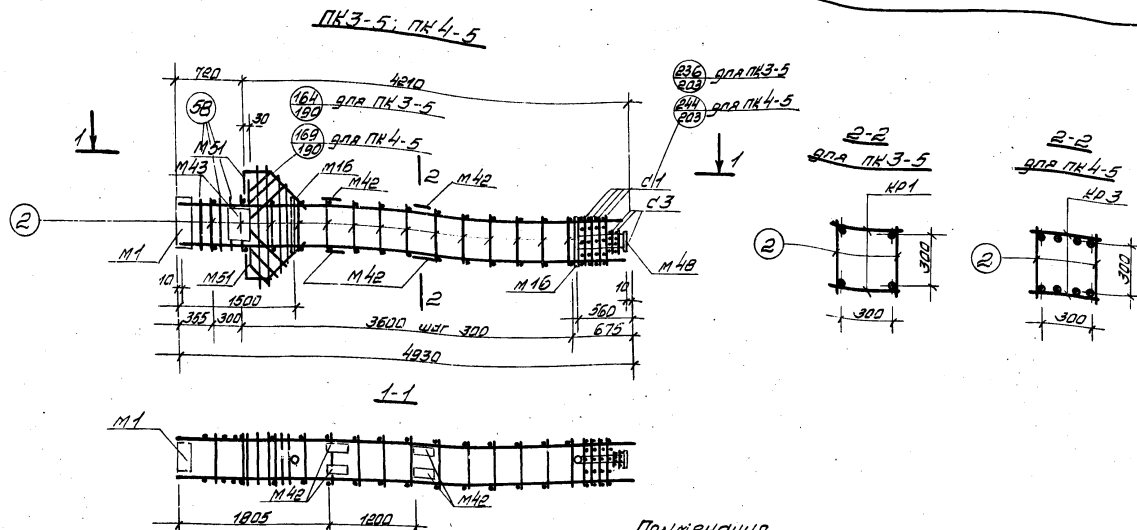 ПК3-5; ПК4-5
720
4210
58
30
164
190
для ПК3-5
169
190
для ПК4-5
236
203
для ПК3-5
244
203
для ПК4-5
1
1
М51
М43
М16
М42
2
М42
С1
С3
2
М1
М51
М42
2
М16
М48
10
1500
10
560
355
300
3600 шаг 300
675
4930
2-2
для ПК3-5
КР1
2
300
300
2-2
для ПК4-5
КР3
2
300
300
1-1
М1
М42
М42
1805
1200
Примечания